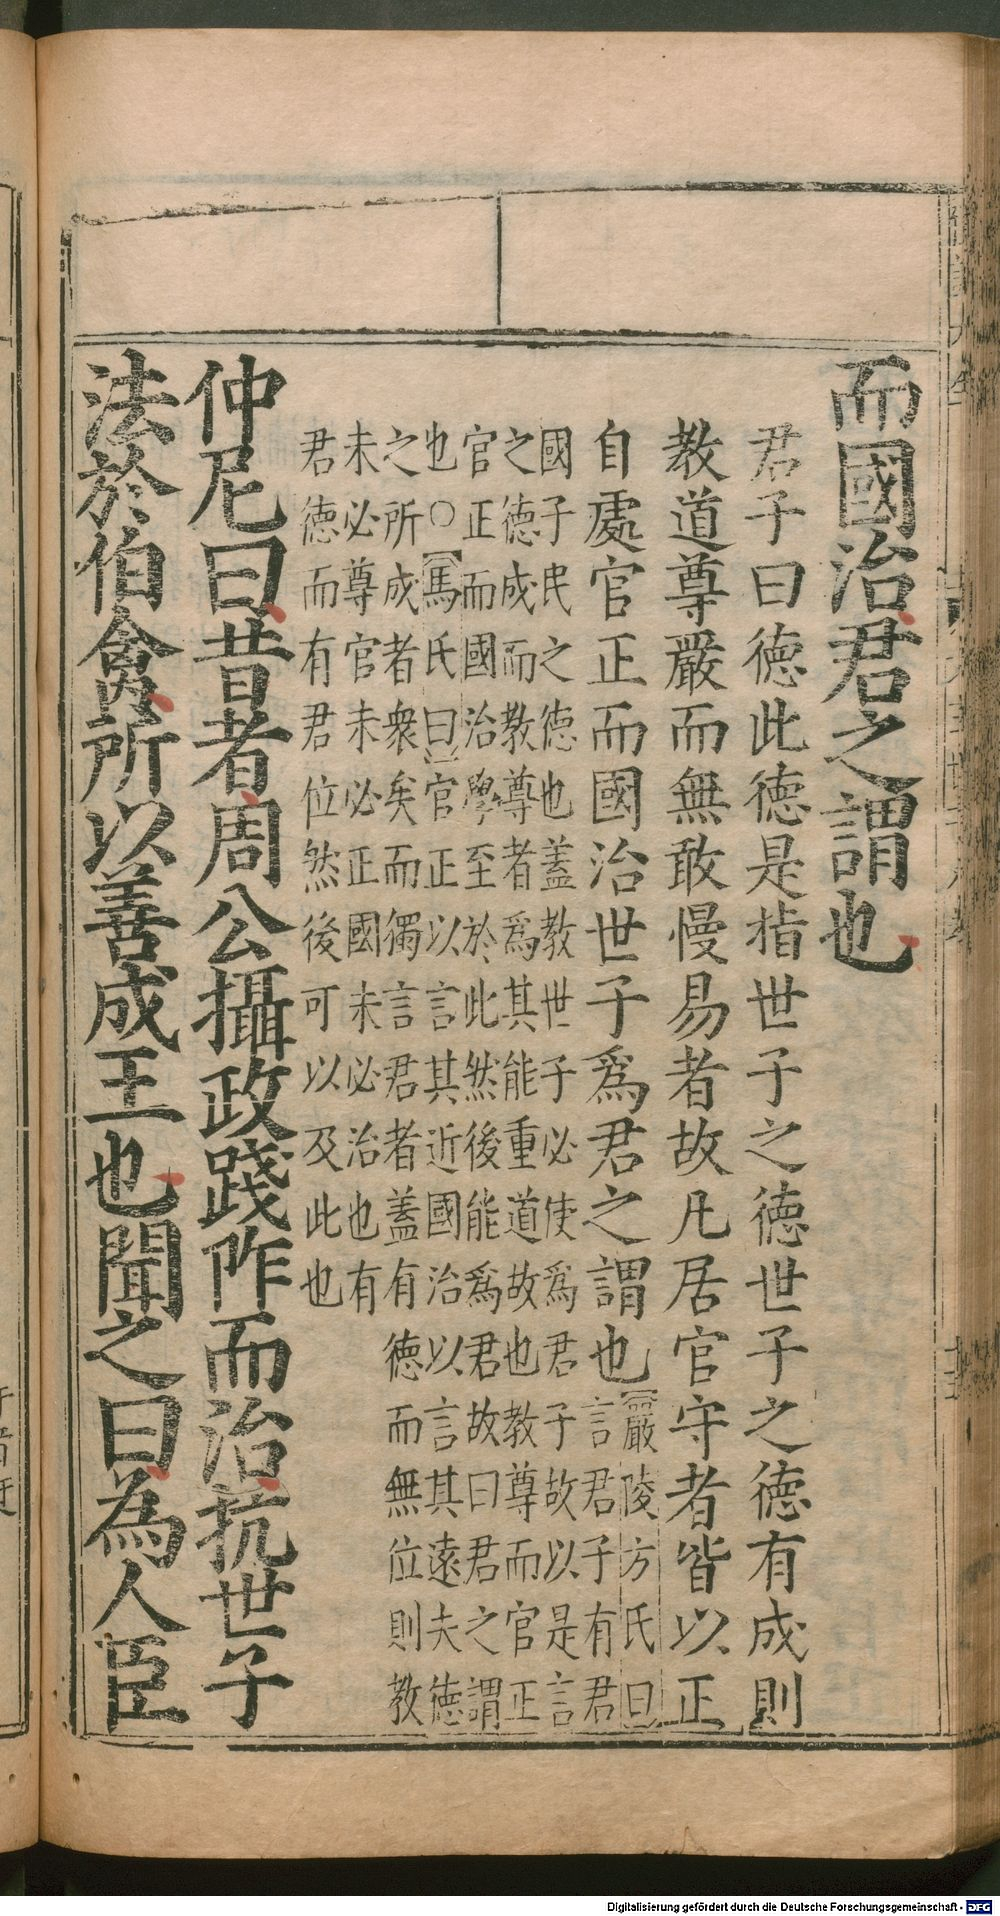 而國治君之謂也
君子曰德此德是指世子之德世子之德有成則
教道尊嚴而無敢慢易者故凡居官守者皆以正
自處官正而國治世子爲君之謂也
嚴陵方氏曰
言君子有君
國子民之德也蓋教世子必使爲君子故以是言
之德成而教尊者爲其能重道故也教尊而官正
官正而國治學至於此然後能爲君故曰君之謂
也○馬氏曰官正以言其近國治以言其遠夫德
之所成者衆矣而獨言君者蓋有德而無位則教
未必尊官未必正國未必治也有
君德而有君位然後可以及此也
仲尼曰昔者周公攝政踐阼而治抗世子
法於伯禽所以善成王也聞之曰為人臣
Digitalisierung gefördert durch die Deutsche Forschungsgemeinschaft - DFG